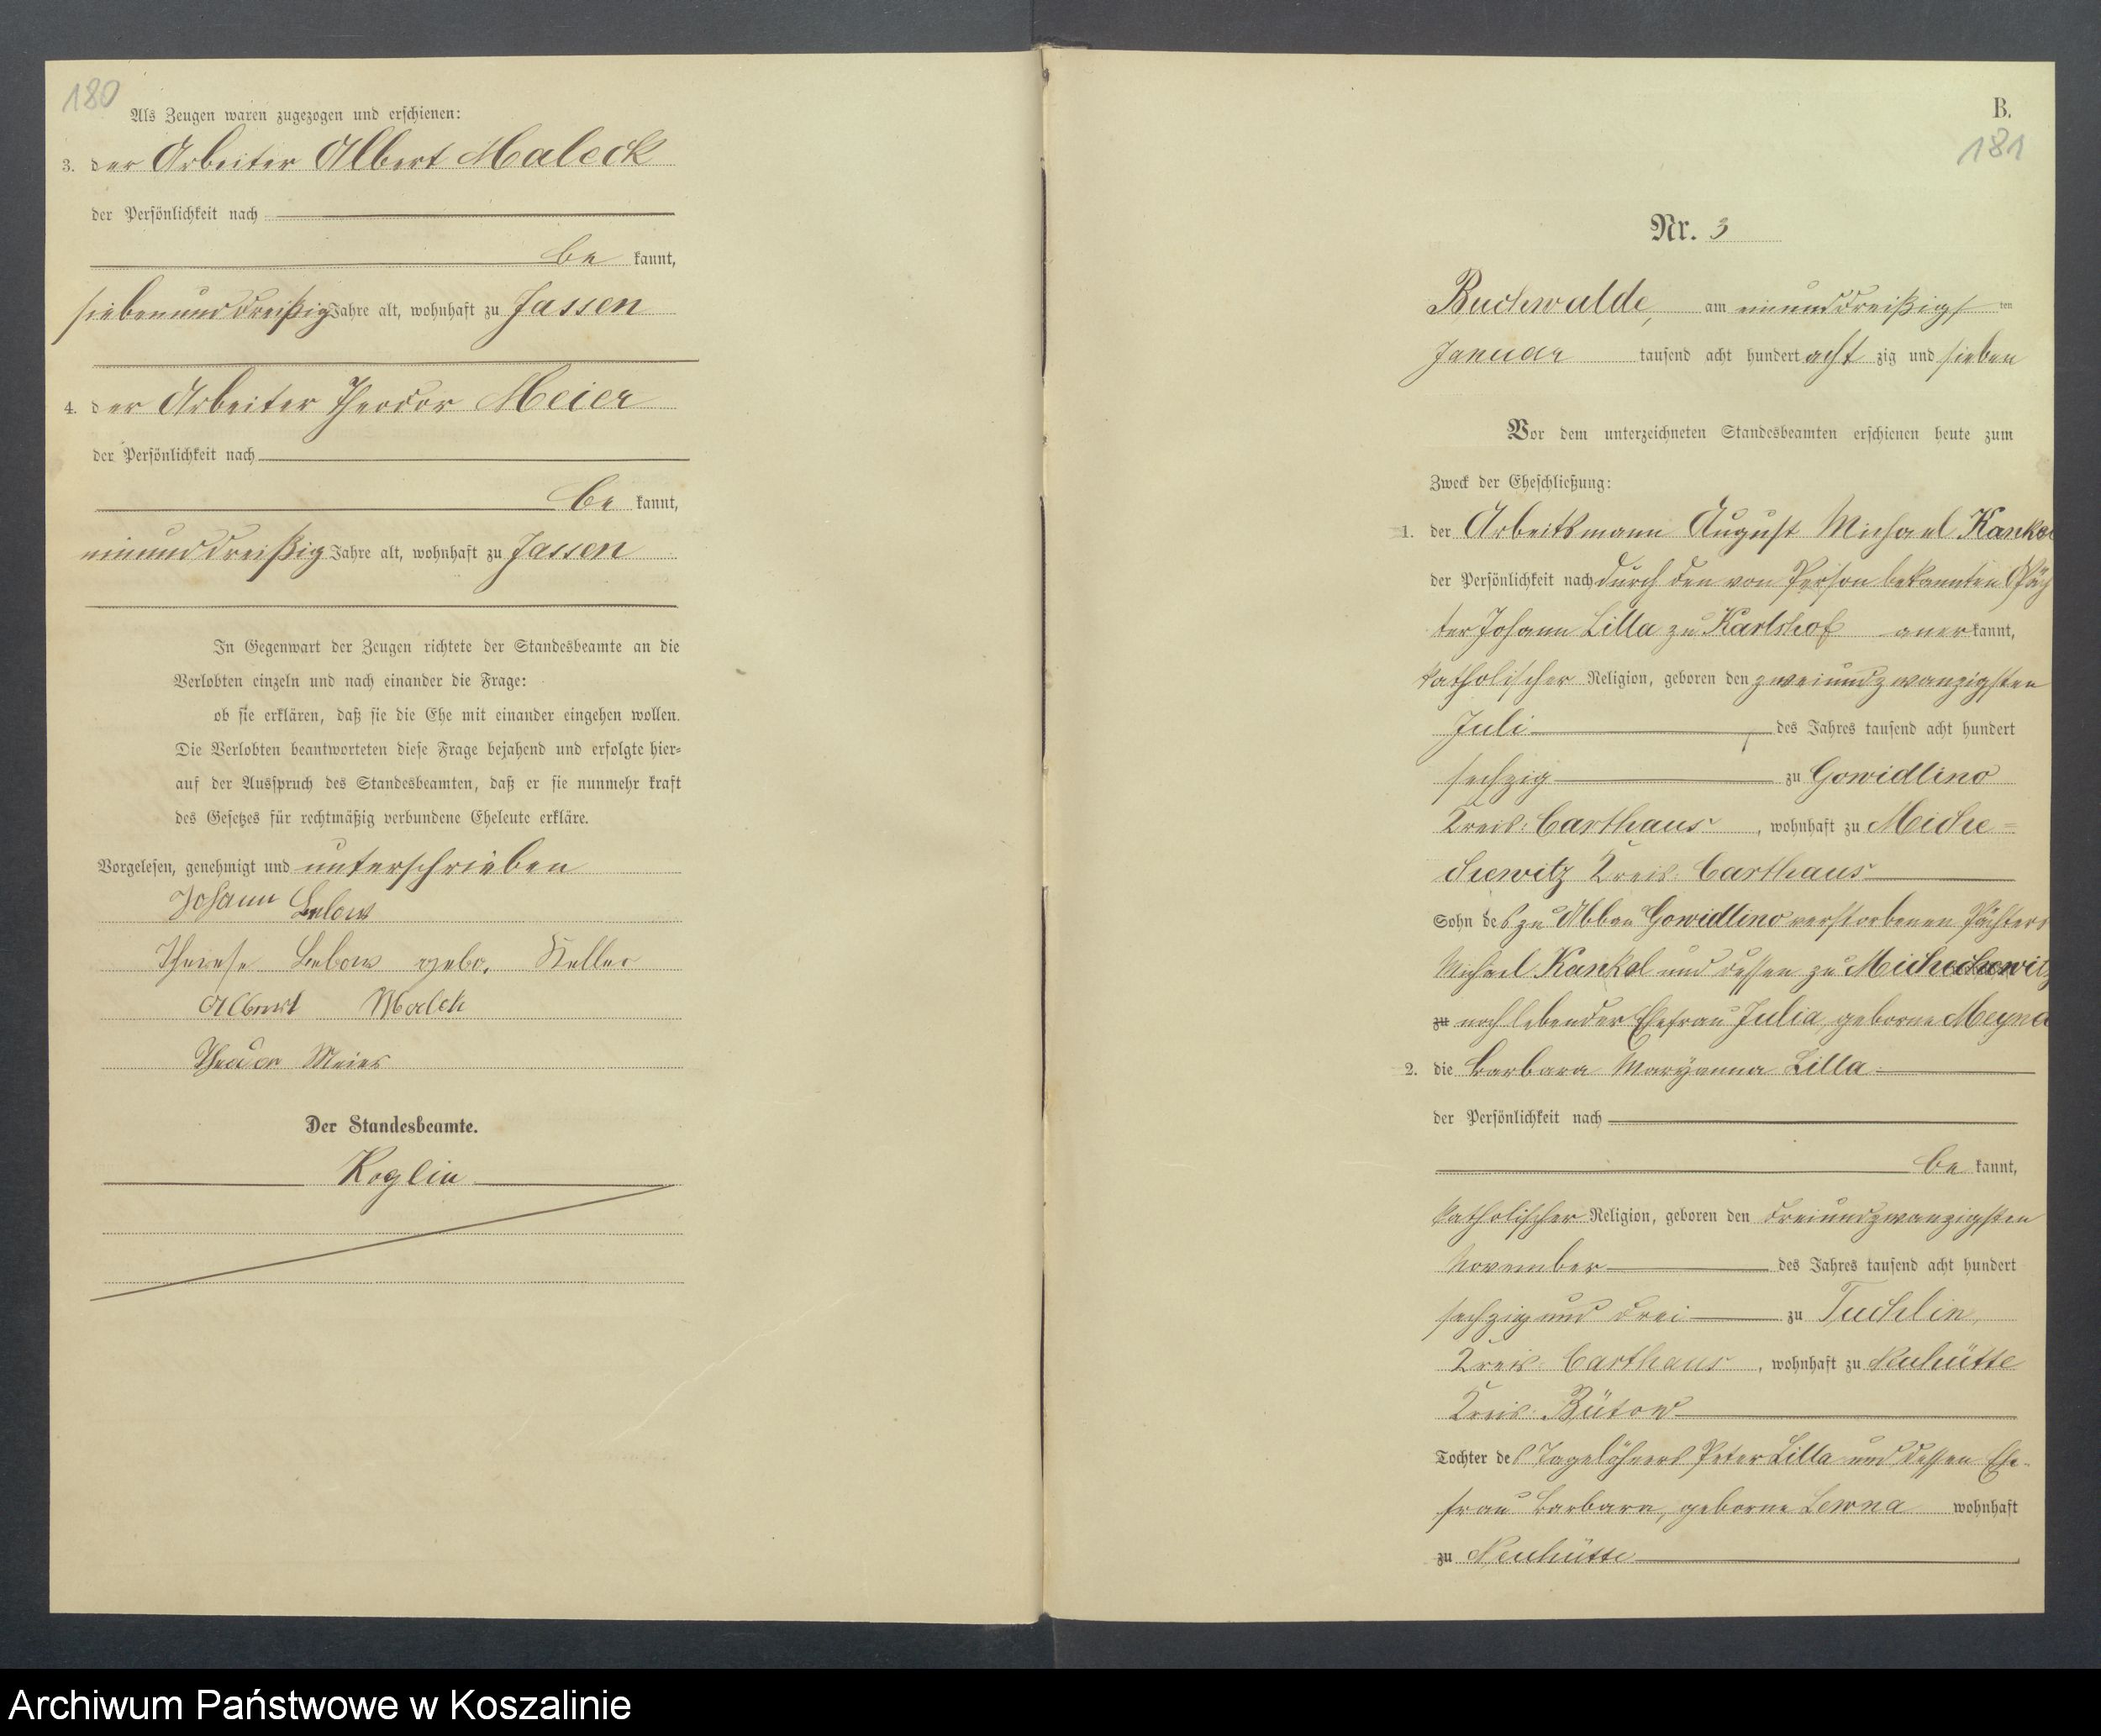 180
Als Zeugen waren zugezogen und erschienen:
3. der Arbeiter Albert Maleck
der Persönlichkeit nach
be kannt,
siebenunddreißig Jahre alt, wohnhaft zu Jassen
4. der Arbeiter Theodor Meier
der Persönlichkeit nach
be kannt,
einunddreißig Jahre alt, wohnhaft zu Jassen
In Gegenwart der Zeugen richtete der Standesbeamte an die
Verlobten einzeln und nach einander die Frage:
ob sie erklären, daß sie die Ehe mit einander eingehen wollen.
Die Verlobten beantworteten diese Frage bejahend und erfolgte hier=
auf der Ausspruch des Standesbeamten, daß er sie nunmehr kraft
des Gesetzes für rechtmäßig verbundene Eheleute erkläre.
Vorgelesen, genehmigt und unterschrieben
Johann
Therese gebo. Keller
Albert Malek
Theodor Meier
Der Standesbeamte.
Koglin
B.
181
Nr. 3
Buchwalde, am einunddreißigsten
Januar tausend acht hundert acht zig und sieben
Vor dem unterzeichneten Standesbeamten erschienen heute zum
Zweck der Eheschließung:
1. der Arbeitsmann August Michael
der Persönlichkeit nach durch den von Person bekannten Päch
ter Johann Lilla zu Karlshof aner kannt,
katholischer Religion, geboren den zweiundzwanzigsten
Juli des Jahres tausend acht hundert
sechzig zu Gowidlino
Kreis Carthaus, wohnhaft zu Miche=
chewitz Kreis Carthaus
Sohn des zu Abbau Gowidlino verstorbenen Pächters
Michael Kankel und dessen zu Michechewitz
zu noch lebender Ehefrau Julia, geborne Meyna
2. die Barbara Maryanna Lilla
der Persönlichkeit nach
be kannt,
katholischer Religion, geboren den dreiundzwanzigsten
November des Jahres tausend acht hundert
sechzig und drei zu Tuchlin,
Kreis Carthaus, wohnhaft zu Neuhütte
Kreis Bütow
Tochter des Tagelöhners Peter Lilla und dessen Ehe-
frau Barbara, geborne Lewna wohnhaft
zu Neuhütte
Archiwum Państwowe w Koszalinie